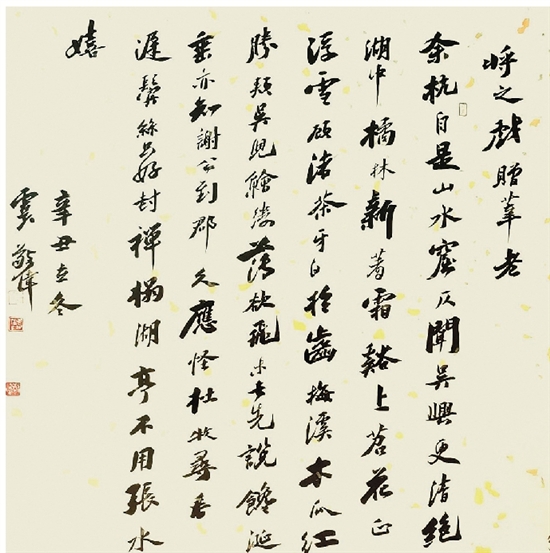 將之戲贈莘老
余杭自是山水窟仄聞吳興更清絕
湖中橘林新著霜谿上苕花正
浮雪顧渚茶牙白於齒梅溪木瓜紅
勝頰吳兒鱠縷薄欲飛未去先說饞涎
垂亦知謝公到郡久應怪杜牧尋春
遲鬢絲只好封禪榻湖亭不用張水
嬉
辛丑立冬
雲